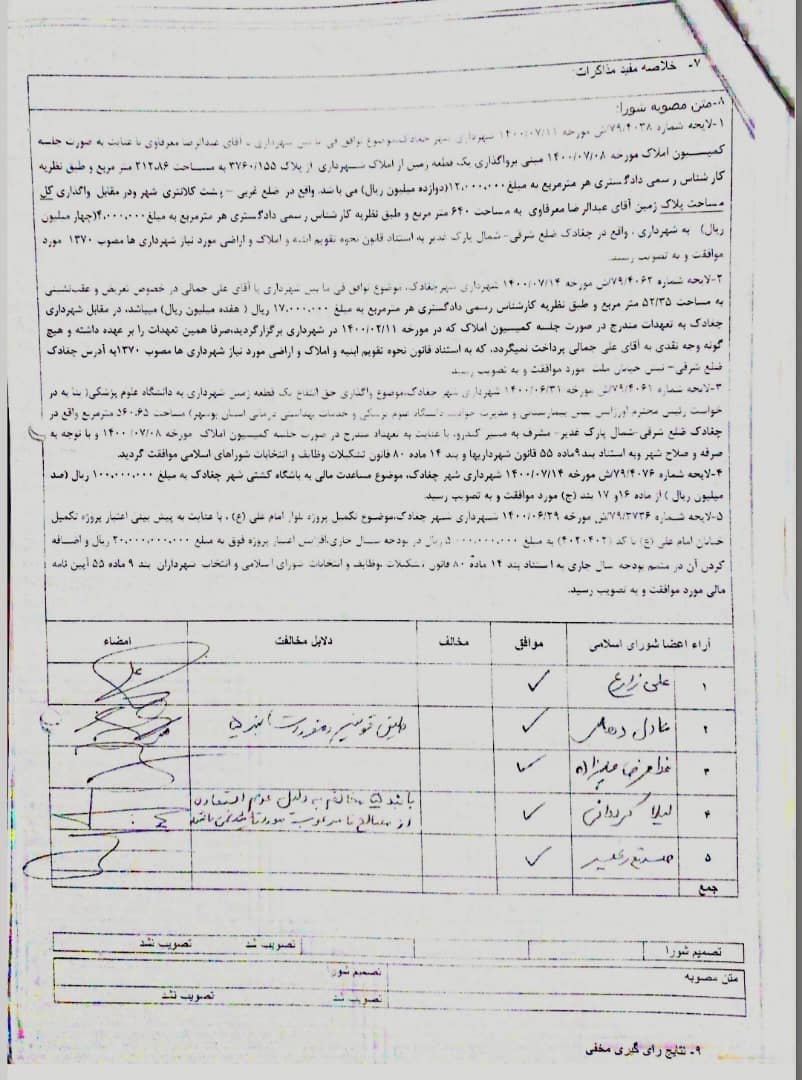 ۷- خلاصه مفید مذاکرات:
۸-متن مصوبه شورا:
۱-لایحه شماره ۷۹/۴۰۳۸/ش مورخه ۱۴۰۰/۰۷/۱۱ شهرداری شهر چغادک،موضوع توافق فی ما بین شهرداری با آقای عبدالرضا معرفاوی با عنایت به صورت جلسه
کمیسیون املاک مورخه ۱۴۰۰/۰۷/۰۸ مبنی برواگذاری یک قطعه زمین از املاک شهرداری از پلاک ۳۷۶۰/۱۵۵ به مساحت ۲۱۲،۸۶ متر مربع و طبق نظریه
کارشناس رسمی دادگستری هر مترمربع به مبلغ ۱۲،۰۰۰،۰۰۰(دوازده میلیون ریال) می باشد. واقع در ضلع غربی – پشت کلانتری شهر ودر مقابل واگذاری کل
مساحت پلاک زمین آقای عبدالرضا معرفاوی به مساحت ۶۴۰ متر مربع و طبق نظریه کارشناس رسمی دادگستری هر مترمربع به مبلغ ۴،۰۰۰،۰۰۰(چهار میلیون
ریال) به شهرداری ، واقع در چغادک ضلع شرقی- شمال پارک غدیر به استناد قانون نحوه تقویم ابنیه و املاک و اراضی مورد نیاز شهرداری ها مصوب ۱۳۷۰ مورد
موافقت و به تصویب رسید.
۲-لایحه شماره ۷۹/۴۰۶۲/ش مورخه ۱۴۰۰/۰۷/۱۴ شهرداری شهر چغادک، موضوع توافق فی ما بین شهرداری با آقای علی جمالی در خصوص تعریض و عقب‌نشینی
به مساحت ۵۲/۳۵ متر مربع و طبق نظریه کارشناس رسمی دادگستری هر مترمربع به مبلغ ۱۷،۰۰۰،۰۰۰ ریال ( هفده میلیون ریال) میباشد، در مقابل شهرداری
چغادک به تعهدات مندرج در صورت جلسه کمیسیون املاک که در مورخه ۱۴۰۰/۰۲/۱۱ در شهرداری برگزارگردید،صرفا همین تعهدات را بر عهده داشته و هیچ
گونه وجه نقدی به آقای علی جمالی پرداخت نمیگردد، که به استناد قانون نحوه تقویم ابنیه و املاک و اراضی مورد نیاز شهرداری ها مصوب ۱۳۷۰به آدرس چغادک
ضلع شرقی- نبش خیابان ملت مورد موافقت و به تصویب رسید.
۳-لایحه شماره ۷۹/۴۰۶۱/ش مورخه ۱۴۰۰/۰۶/۳۱ شهرداری شهر چغادک،موضوع واگذاری حق انتفاع یک قطعه زمین شهرداری به دانشگاه علوم پزشکی( بنا به در
خواست رئیس محترم اورژانس پیش بیمارستانی و مدیریت حوادث دانشگاه علوم پزشکی و خدمات بهداشتی درمانی استان بوشهر) مساحت ۵۶۰،۶۵ مترمربع واقع در
چغادک ضلع شرقی-شمال پارک غدیر- مشرف به مسیر کندرو، با عنایت به تعهدات مندرج در صورت جلسه کمیسیون املاک مورخه ۱۴۰۰/۰۷/۰۸ و با توجه به
صرفه و صلاح شهر وبه استناد بند۹ماده ۵۵ قانون شهرداریها و بند ۱۴ ماده ۸۰ قانون تشکیلات وظایف و انتخابات شوراهای اسلامی موافقت گردید.
۴-لایحه شماره ۷۹/۴۰۷۶/ش مورخه ۱۴۰۰/۰۷/۱۴ شهرداری شهر چغادک، موضوع مساعدت مالی به باشگاه کشتی شهر چغادک به مبلغ ۱۰۰،۰۰۰،۰۰۰ ریال (صد
میلیون ریال ) از ماده ۱۶و ۱۷ بند (ج) مورد موافقت و به تصویب رسید.
۵-لایحه شماره ۷۹/۳۷۳۶/ش مورخه ۱۴۰۰/۰۶/۲۹ شهرداری شهر چغادک،موضوع تکمیل پروژه بلوار امام علی (ع) ، با عنایت به پیش بینی اعتبار پروژه تکمیل
خیابان امام علی (ع) با کد (۴۰۲۰۴۰۲) به مبلغ ۵،۰۰۰،۰۰۰،۰۰۰ ریال در بودجه سال جاری،افزایش اعتبار پروژه فوق به مبلغ ۲۰،۰۰۰،۰۰۰،۰۰۰ ریال و اضافه
کردن آن در متمم بودجه سال جاری به استناد بند ۱۴ ماده ۸۰ قانون تشکیلات ،وظایف و انتخابات شورای اسلامی و انتخاب شهرداران بند ۹ ماده ۵۵ آیین نامه
مالی مورد موافقت و به تصویب رسید.
آراء اعضا شورای اسلامی موافق مخالف دلایل مخالفت امضاء
۱ علی زارع ✓
۲ عادل ✓
۳ ✓
۴ لیلا گردوانی ✓ با بند ۵ مخالفم به دلیل عدم استفاده
از مصالح
۵ ✓
جمع
تصمیم شورا تصویب شد تصویب نشد
متن مصوبه تصمیم شورا
تصویب شد تصویب نشد
۹- نتایج رای گیری مخفی